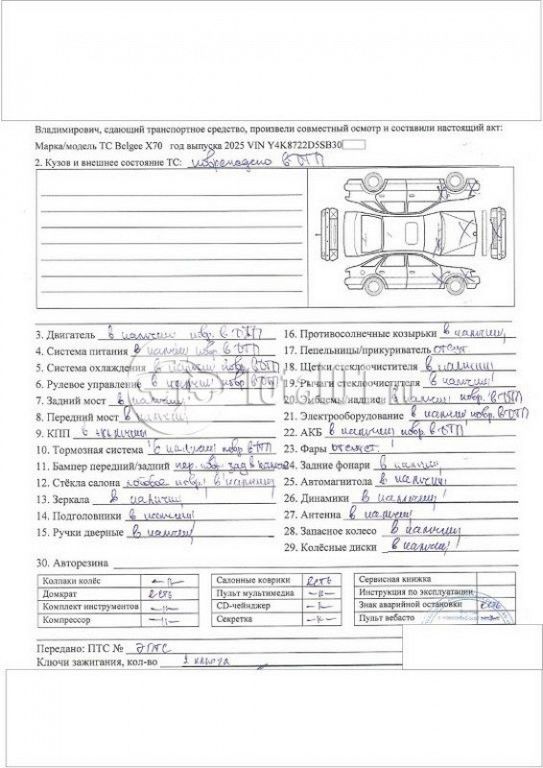 Владимирович, сдающий транспортное средство, произвели совместный осмотр и составили настоящий акт:
Марка/модель ТС Belgee X70 год выпуска 2025 VIN Y4K8722D5SB30
2. Кузов и внешнее состояние ТС: повреждено в ДТП
3. Двигатель в наличии повр. в ДТП
4. Система питания в наличии повр. в ДТП
5. Система охлаждения в наличии повр. в ДТП
6. Рулевое управление в наличии повр. в ДТП
7. Задний мост в наличии
8. Передний мост в наличии
9. КПП в наличии
10. Тормозная система в наличии повр. в ДТП
11. Бампер передний/задний пер. повр. зад в
12. Стёкла салона лобовое повр. в наличии
13. Зеркала в наличии
14. Подголовники в наличии
15. Ручки дверные в наличии
16. Противосолнечные козырьки в наличии
17. Пепельницы/прикуриватель отсут
18. Щетки стеклоочистителя в наличии
19. Рычаги стеклоочистителя в наличии
20. Эмблемы/надписи в наличии повр. в ДТП
21. Электрооборудование в наличии повр. в ДТП
22. АКБ в наличии повр. в ДТП
23. Фары отсутст.
24. Задние фонари в наличии
25. Автомагнитола в наличии
26. Динамики в наличии
27. Антенна в наличии
28. Запасное колесо в наличии
29. Колёсные диски в наличии
30. Авторезина
Колпаки колёс Салонные коврики есть Сервисная книжка
Домкрат есть Пульт мультимедиа Инструкция по эксплуатации
Комплект инструментов CD-чейнджер Знак аварийной остановки есть
Компрессор Секретка Пульт вебасто
Передано: ПТС № ЭПТС
Ключи зажигания, кол-во 1